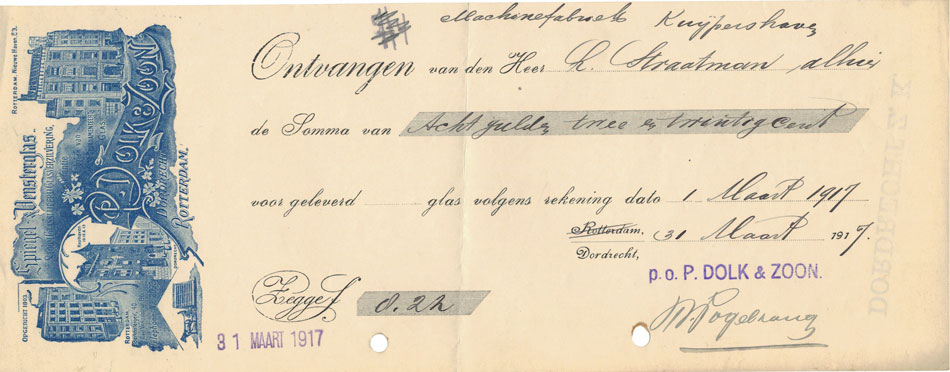 Machinefabriek Kuijpershaven
Ontvangen van den Heer L. Straatman alhier
de Somma van Acht gulden twee en twintig cent
voor geleverd glas volgens rekening dato 1 Maart 1917
Rotterdam, 31 Maart 1917.
Dordrecht,
p.o. P. DOLK & ZOON.
Zegge f 8.22
31 MAART 1917
ROTTERDAM, NIEUWE HAVEN
Spiegel & Vensterglas
P. DOLK & ZOON
ROTTERDAM.
OPGERICHT 1803
ROTTERDAM